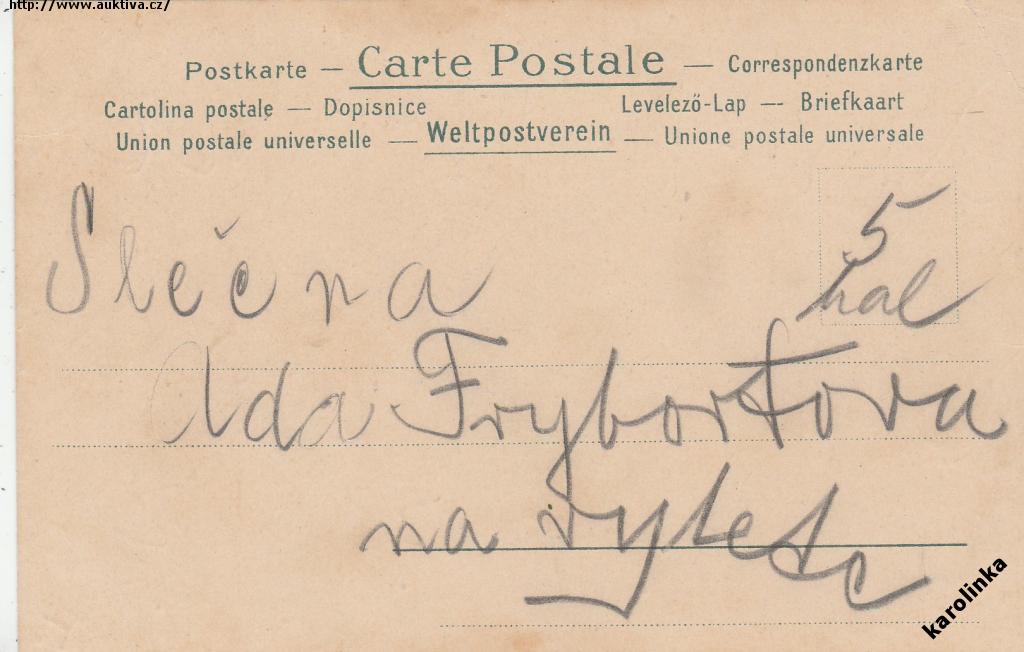 http://www.auktiva.cz/
Postkarte — Carte Postale — Correspondenzkarte
Cartolina postale — Dopisnice Levelező-Lap — Briefkaart
Union postale universelle — Weltpostverein — Unione postale universale
5
hal
Slečna
Ada Frybortova
na
karolinka